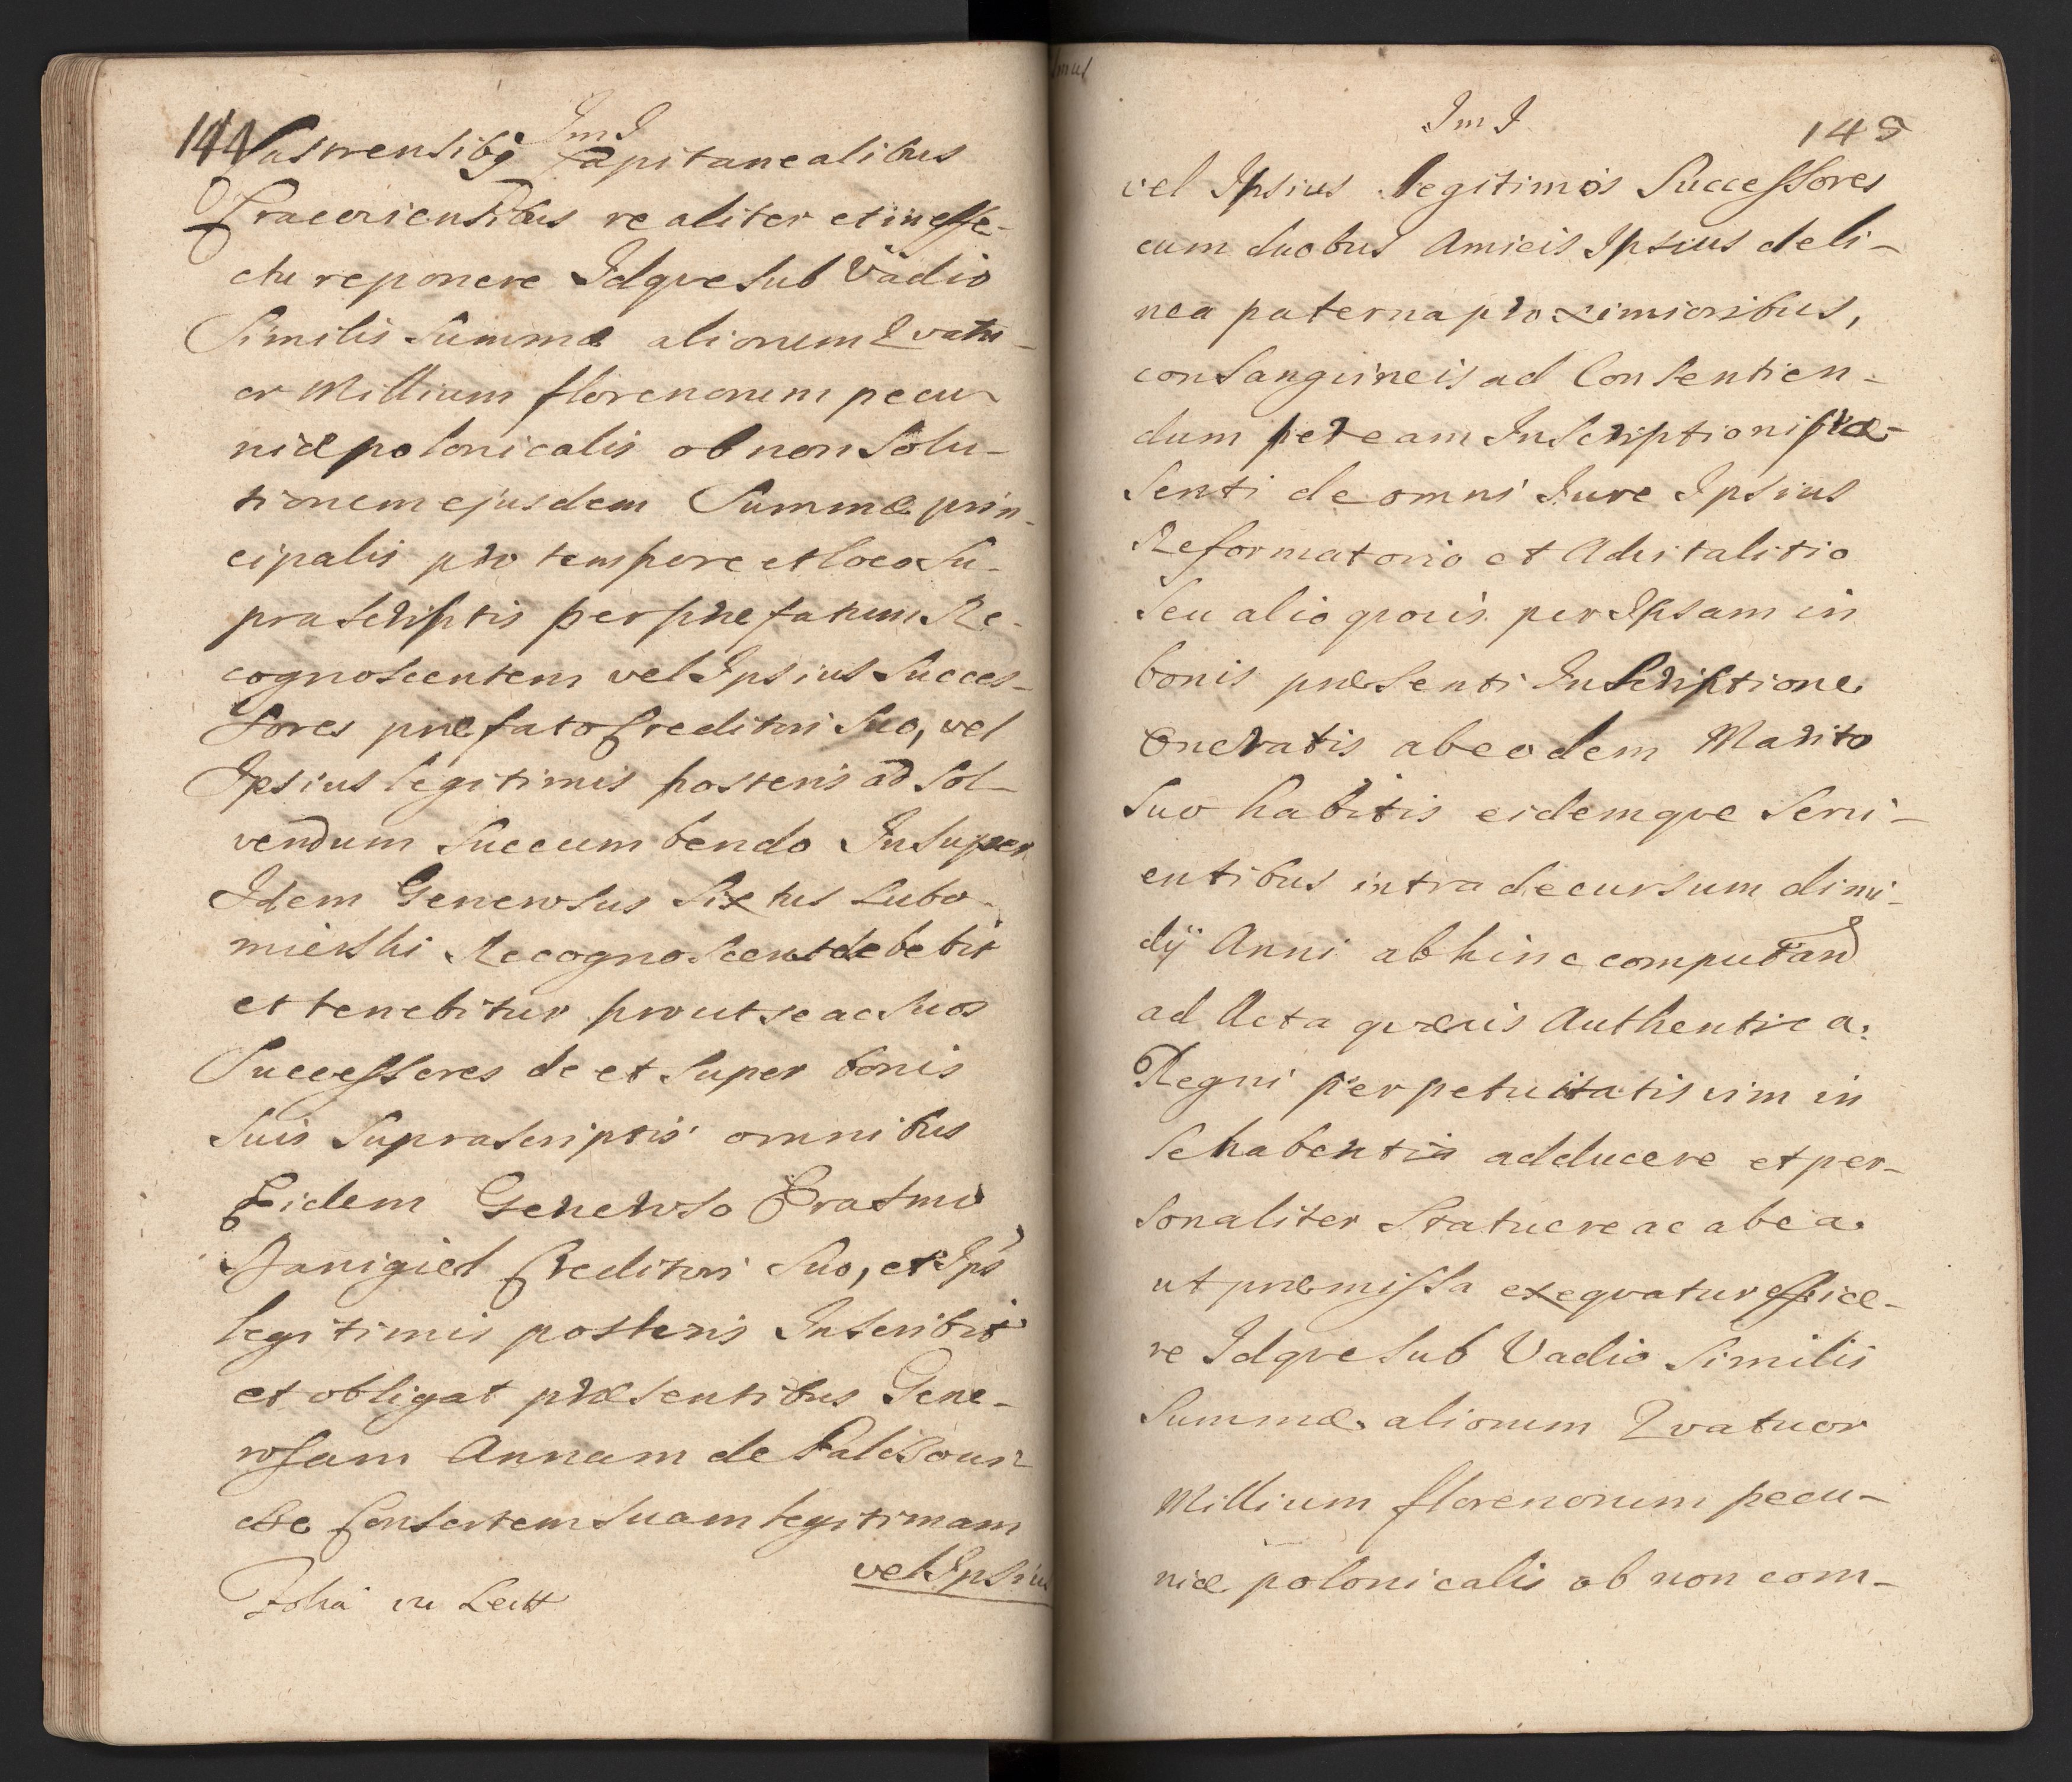 144
JmJ
Castrensibq Capitanealibus
Cracoviensibus realiter et in effe-
ctu reponere Idqve sub Vadio
Similis Summæ aliorum Qvatu-
or Millium florenorum pecu-
niæ polonicalis ob non Solu-
tionem ejusdem Summæ prin-
cipalis pro tempore et loco Su-
prascriptis per præfatum Re-
cognoscentem vel Ipsius Succes-
sores præfato Creditori Suo, vel
Ipsius legitimis posteris ad Sol-
vendum Succumbendo Insuper
Idem Generosus Sixtus Lubo-
mierski Recognoscens debebit
et tenebitur prout se ac Suos
Successores de et Super bonis
Suis Suprascriptis omnibus
Eidem Generoso Erasmo
Danigiel Creditori Suo, et Ips
legitimis posteris Inscribit
et obligat præsentibus Gene-
rosam Annam de
Consortem Suam legitimam
vel Ipsius
JmJ
145
vel Ipsius legitimos Successores
cum duobus Amicis Ipsius de li-
nea paterna proximioribus,
consangvineis ad Consentien-
dum per eam Inscriptioni præ-
senti de omni Jure Ipsius
Reformatorio et Advitalitio
seu alio qvovis per Ipsam in
bonis præsenti Inscriptione
Oneratis ab eodem Marito
Suo habitis eidemqve Servi-
entibus intra decursum dimi-
dij Anni ab hinc computand
ad Acta qvævis Authentica
Regni perpetuitatis vim in
se habentia adducere et per-
sonaliter Statuere ac ab ea
ut præmissa exeqvatur effice-
re Idqve sub Vadio Similis
Summæ aliorum Qvatuor
Millium florenorum pecu-
niæ polonicalis ob non com-